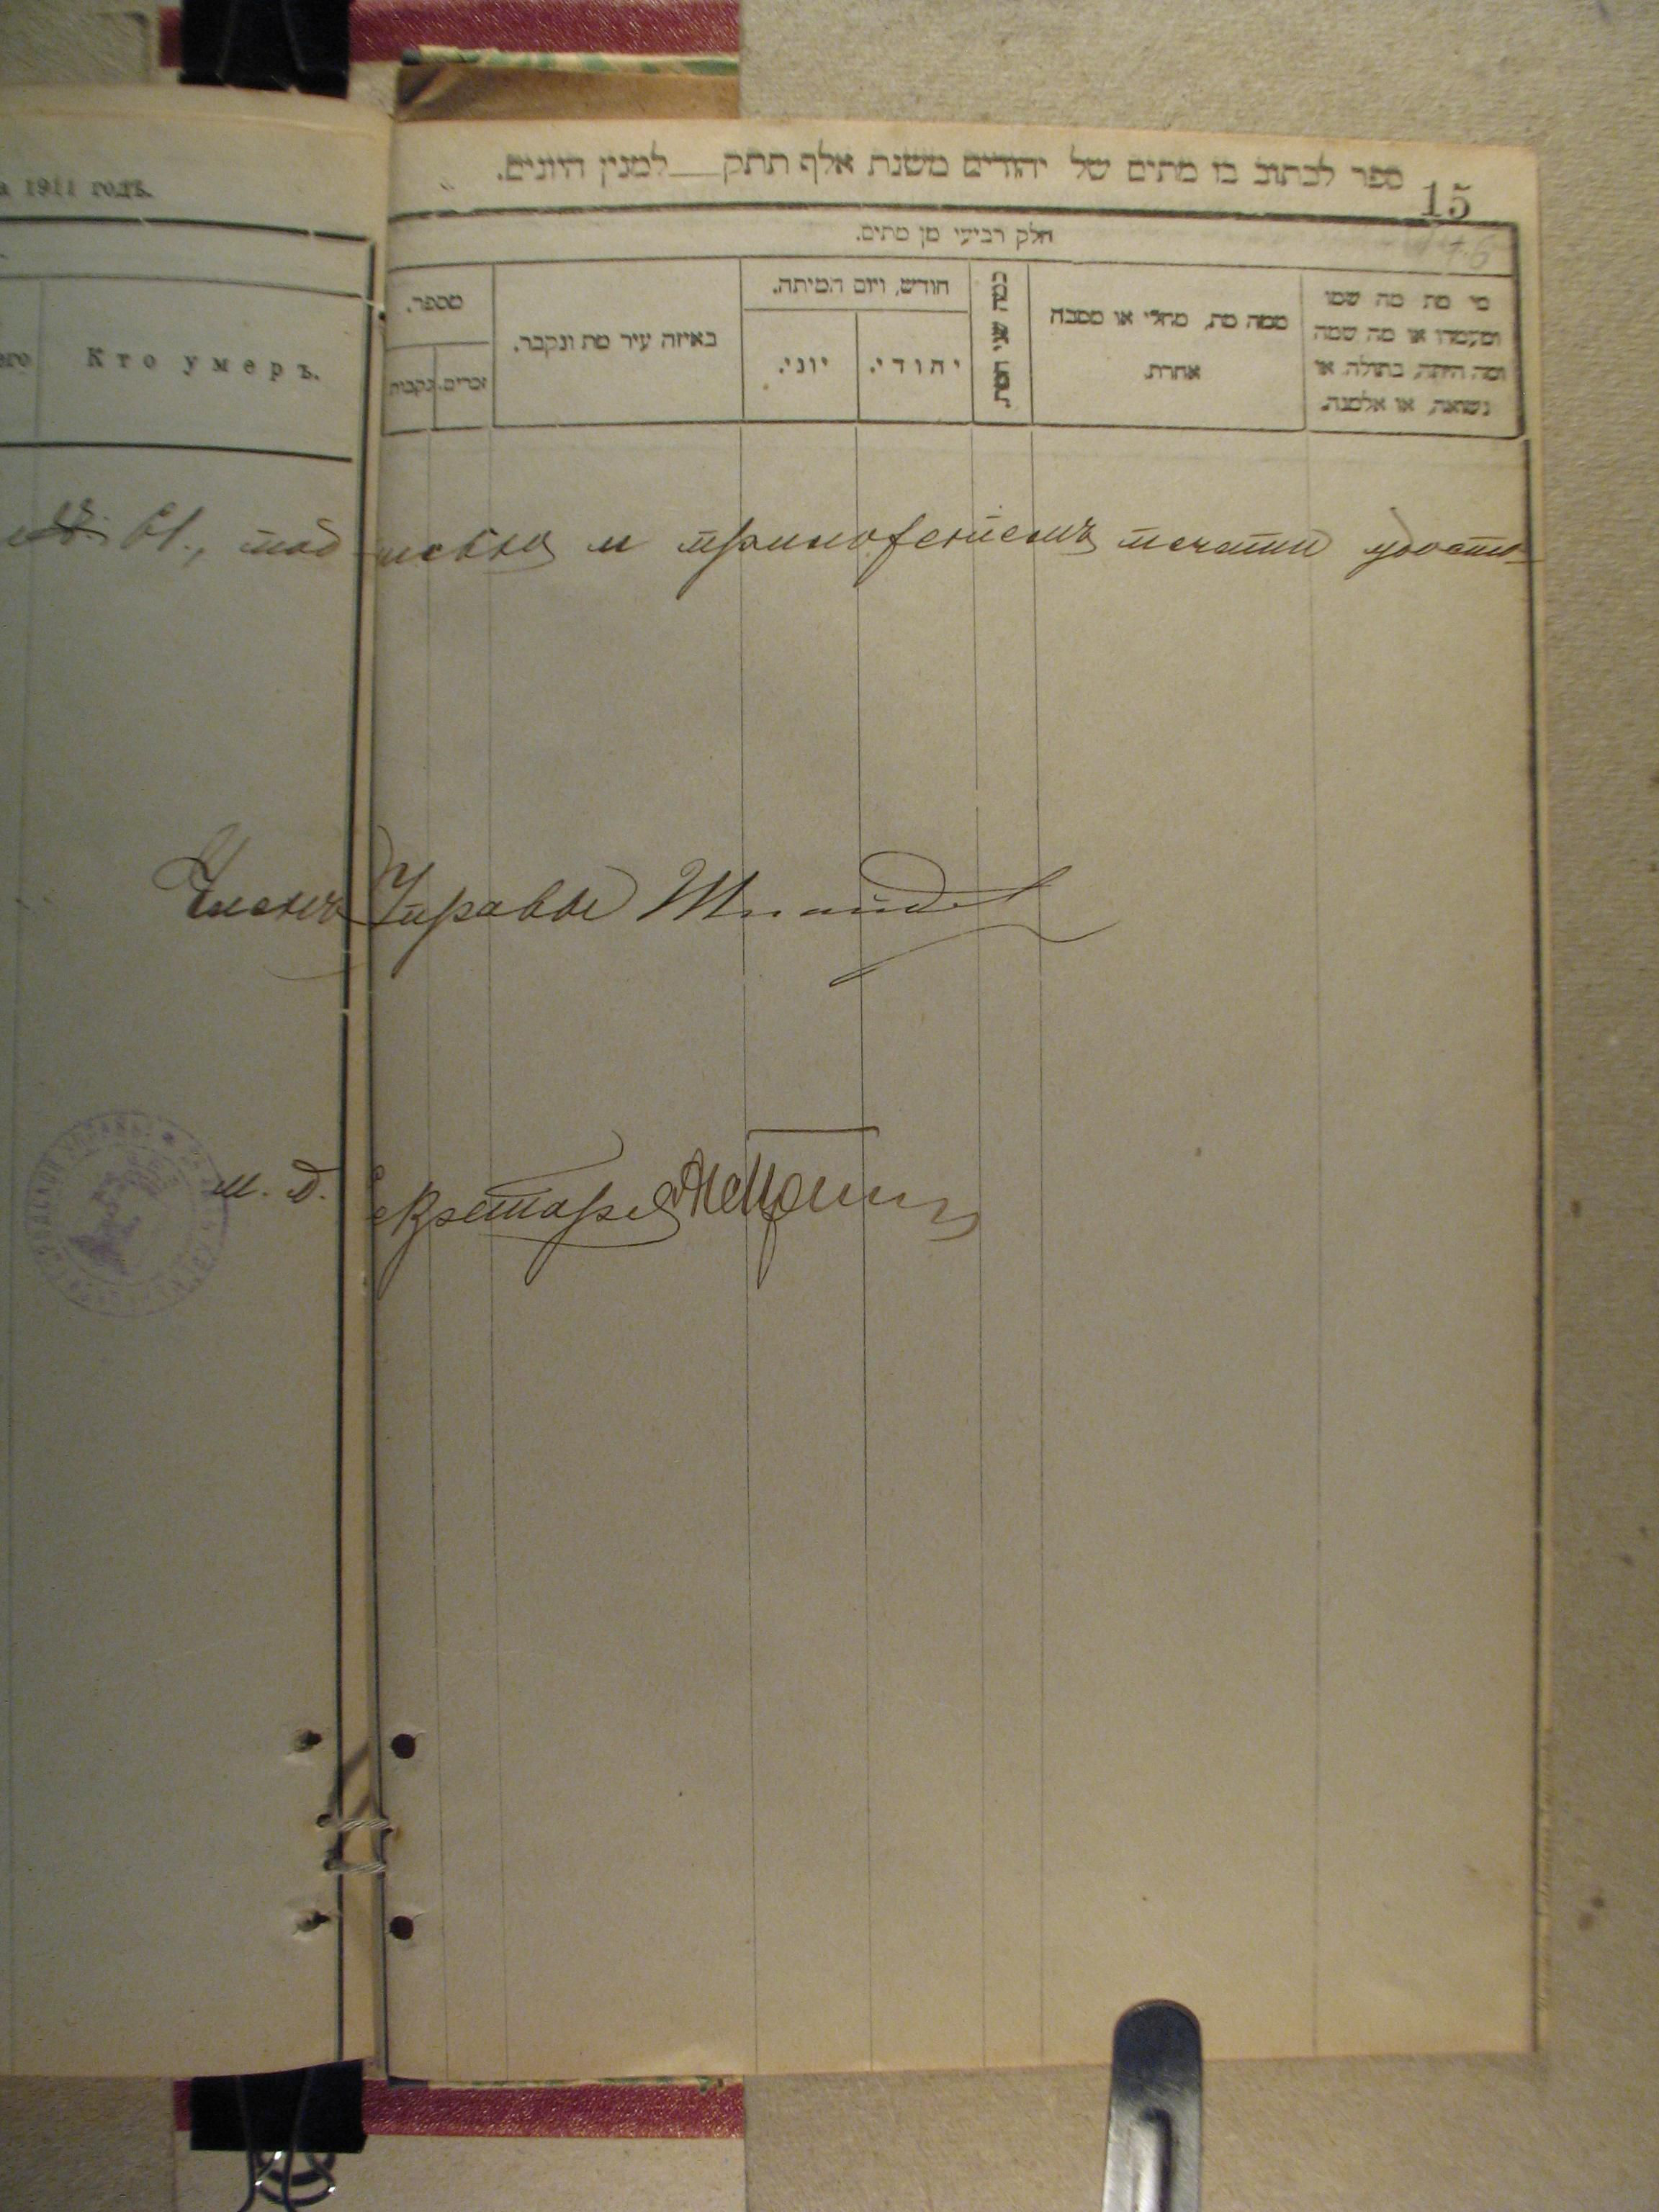 а 1911 годъ.
ספר לכתוב בו מתים של יהודים משנת אלף תתק למנין היונים.
15
חלק רביעי מן מתים.
Кто умеръ.
מספר.
זכרים.
נקבות
באיזה עיר מת ונקבר.
חודש, ויום המיתה.
יוני.
יהודי.
כמה שני המת
ממה מת, מחלי או מסבה
אחרת.
מי מת מה שמו
ומעמדו או מה שמה
ומה היתה, בתולה או
נשואה, או אלמנה.
под писью и приложеніемъ печати удосто-
Членъ Управы
и. д. Секретаря